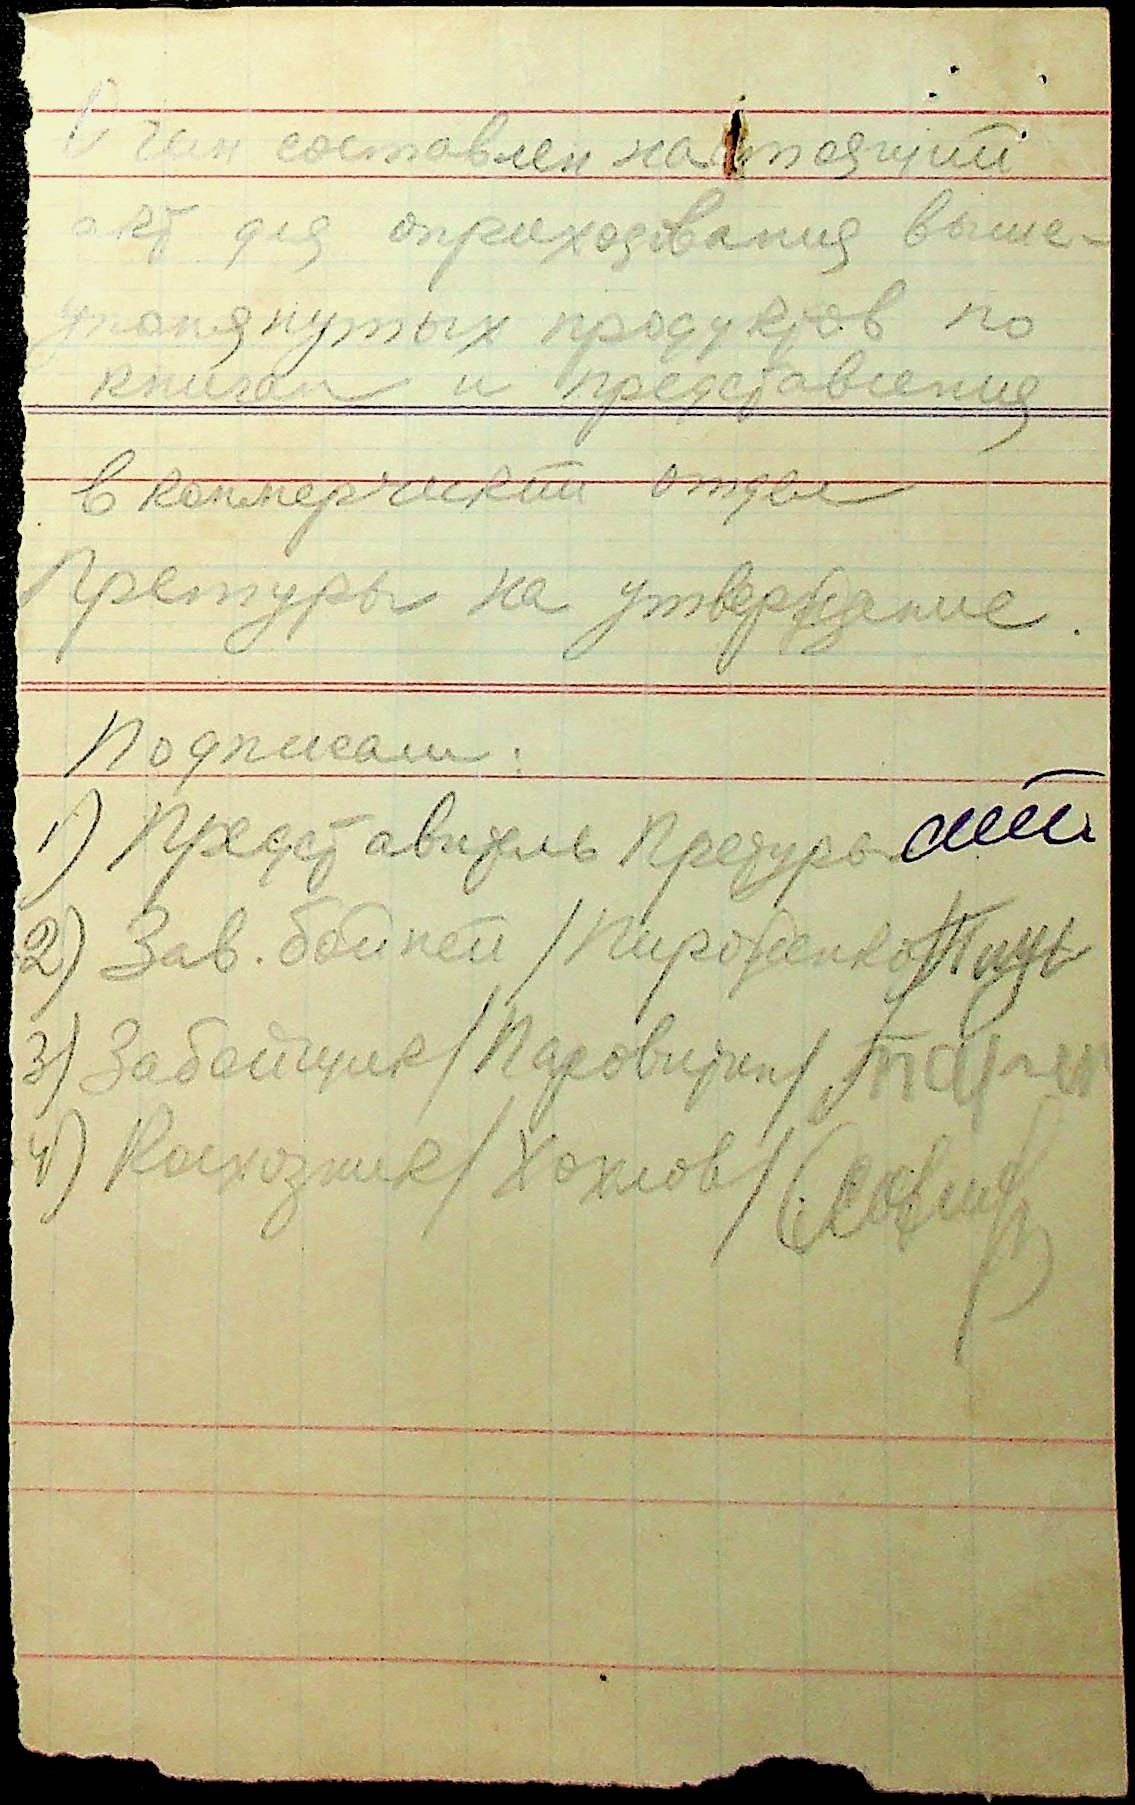 О чем составлен настоящий
акт для оприходования выше-
упомянутых продуктов по
книгам и представления
в коммерческий отдел
Претуры на утверждание.
Подписали:
1) Представитель Претуры
2) Зав. бойней /Пироженко/
3) Забойщик /Паровиткин/
4) Колхозник /Хохлов/